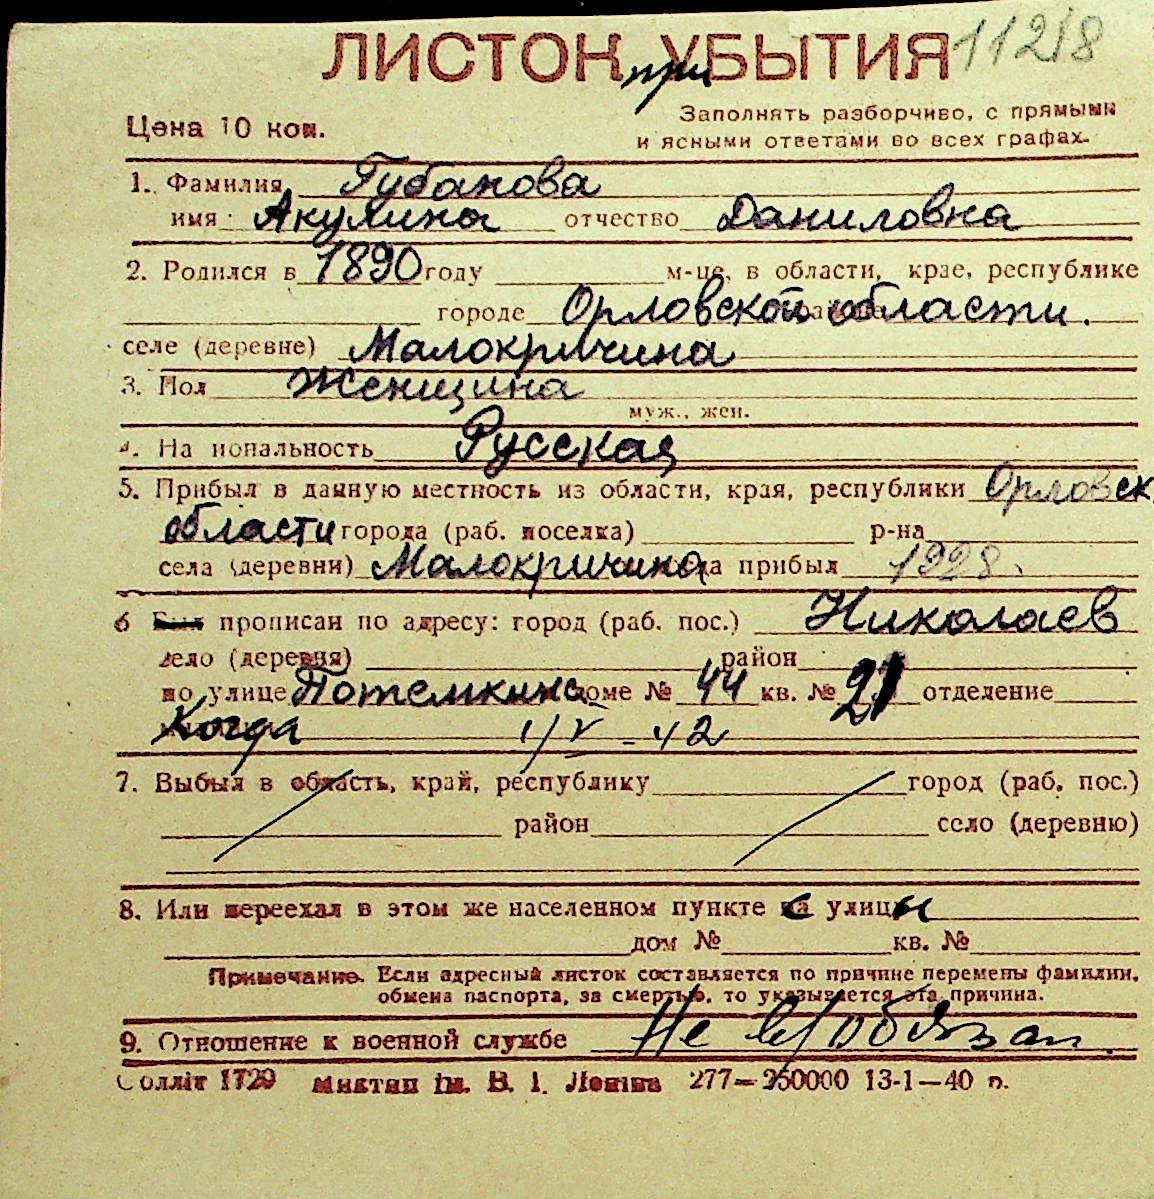 ЛИСТОК при УБЫТИЯ 11218
Цена 10 коп.
Заполнять разборчиво, с прямыми
и ясными ответами во всех графах.
1. Фамилия Губанова
имя Акулина отчество Даниловна
2. Родился в 1890 году м-це, в области, крае, республике
городе Орловской области.
селе (деревне) Малокричина
3. Пол Женщина
муж., жен.
4. На иональность Русская
5. Прибыл в данную местность из области, края, республики Орловск
области города (раб. поселка) р-на
села (деревни) Малокричина да прибыл 1928.
6 Был прописан по адресу: город (раб. пос.) Николаев
село (деревня) район
по улице Потемкинс доме № 44 кв. № 21 отделение
Когда 1/V - 42
7. Выбыл в область, край, республику город (раб. пос.)
район село (деревню)
8. Или переехал в этом же населенном пункте с улицы
дом № кв. №
Примечание. Если адресный листок составляется по причине перемены фамилии,
обмена паспорта, за смертью, то указывается эта причина.
9. Отношение к военной службе Не в/обязан.
Солліт 1729 им. В. І. Леніна 277—250000 13-1—40 р.